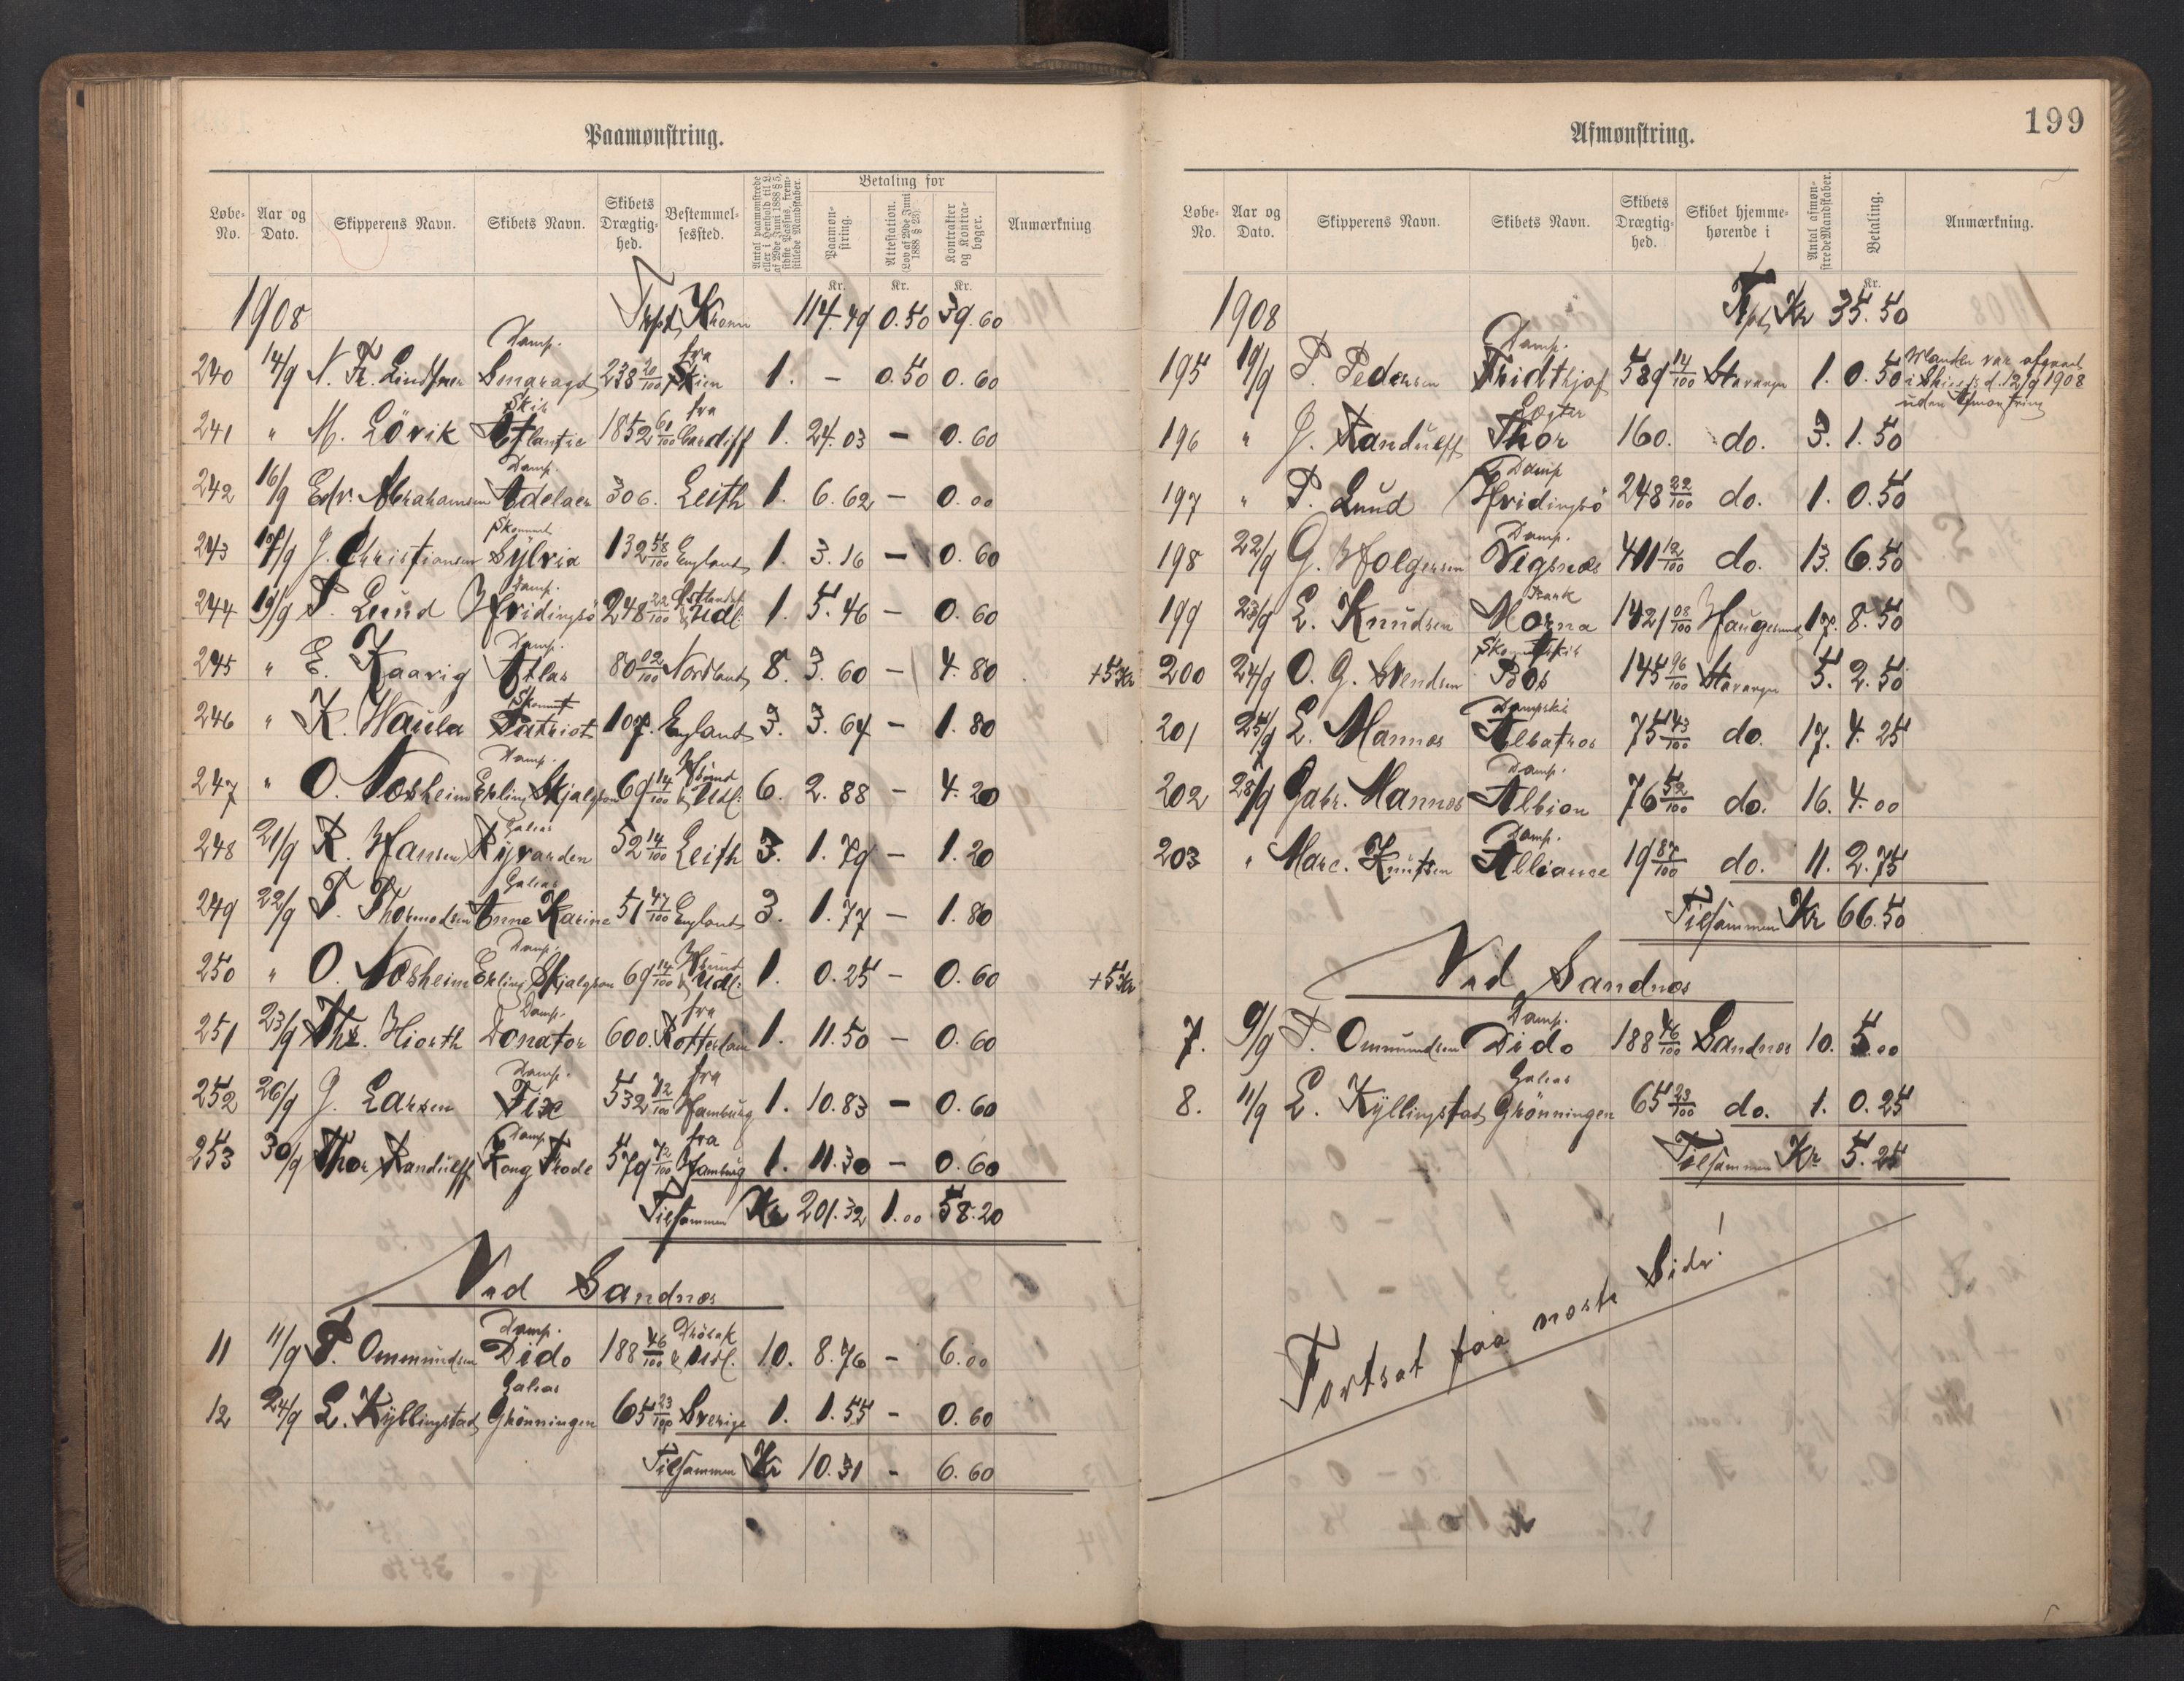 Paamønstring.
Løbe-No. Aar og Dato. Skipperens Navn. Skibets Navn. Skibets Drægtighed. Bestemmelsessted. Betaling for Paamønstring. Attestation. (Lov af 29de Juni 1888 § 23). Kontrakter og Kontrabøger. Anmærkning
Kr. Kr. Kr.
1908 Trpt Kroner 114.49 0.50 39.60
240 14/9 N. Fr. Damp. Smaragd 238 20/100 fra Skien 1. - 0.50 0.60
241 " M. Lövik Skib Atlantic 1852 61/100 fra Cardiff 1. 24.03 - 0.60
242 16/9 Edv. Abrahamsen Damp. Adelaer 306. Leith 1. 6.62 - 0.00
243 17/9 J. Christiansen Skonnert Sylvia 132 58/100 England 1. 3.16 - 0.60
244 19/9 P. Lund Damp. Hvidingsö 248 22/100 Östlandet & Udl. 1. 5.46 - 0.60
245 " E. Kaavig Damp. Atlas 80 02/100 Nordland 8. 3.60 - 4.80 +5 Kr
246 " K. Waula Skonnt Patriot 107. England 3. 3.64 - 1.80
247 " O. Nosheim Damp. Erling Skjalgson 69 14/100 & Udl: 6. 2.88 - 4.20
248 21/9 R. Hansen Galeas Ryvarden 52 14/100 Leith 3. 1.79 - 1.20
249 22/9 T. Thormodsen Galeas Anne Karine 51 47/100 England 3. 1.77 - 1.80
250 " O. Nosheim Damp. Erling Skjalgson 69 14/100 & Udl: 1. 0.25 - 0.60 +5 Kr
251 23/9 Ths. Hiorth Damp. Donator 600. fra Rotterdam 1. 11.50 - 0.60
252 26/9 J. Larsen Damp. Fix 532 72/100 fra Hamburg 1. 10.83 - 0.60
253 30/9 Thor Randulff Damp Kong Frode 579 72/100 fra Hamburg 1. 11.30 - 0.60
Tilsammen Kr 201.32 1.00 58.20
Ved Sandnes
11 11/9 P. Ommundsen Damp. Dido 188 46/100 Dröbak & Udl. 10. 8.76 - 6.00
12 24/9 L. Kyllingstad Galeas Grönningen 65 23/100 Sverige 1. 1.55 - 0.60
Tilsammen Kr 10.31 - 6.60
Afmønstring.
199
Løbe-No. Aar og Dato. Skipperens Navn. Skibets Navn. Skibets Drægtighed. Skibet hjemmehørende i Antal afmønstrede Mandskaber. Betaling. Anmærkning.
Kr.
1908 Trpt Kr 35.50
195 19/9 P. Pedersen Damp. Fridthjof 589 14/100 Stavanger 1. 0.50 Manden var afgaaet i Skien d. 12/9 1908 uden Afmønstring
196 " J. Randulff Thor 160. do. 3. 1.50
197 " P. Lund Damp Hvidingsö 248 22/100 do. 1. 0.50
198 22/9 G. Holgersen Damp. Vigsnes 411 12/100 do. 13. 6.50
199 23/9 L. Knudsen Bark Morna 1421 08/100 Haugesund 17. 8.50
200 24/9 O. G. Svendsen Pos 145 96/100 Stavanger 5. 2.50
201 25/9 L. Mannes Dampskib Albatros 75 43/100 do. 17. 4.25
202 28/9 Gabr. Mannes Damp. Albion 76 52/100 do. 16. 4.00
203 " Marc. Knutsen Damp. Alliance 19 87/100 do. 11. 2.75
Tilsammen Kr 66.50
Ved Sandnes
7. 9/9 P. Ommundsen Damp. Dido 188 46/100 Sandnes 10. 5.00
8. 11/9 L. Kyllingstad Galeas Grönningen 65 23/100 do. 1. 0.25
Tilsammen Kr 5.25
Fortsat paa neste Side!